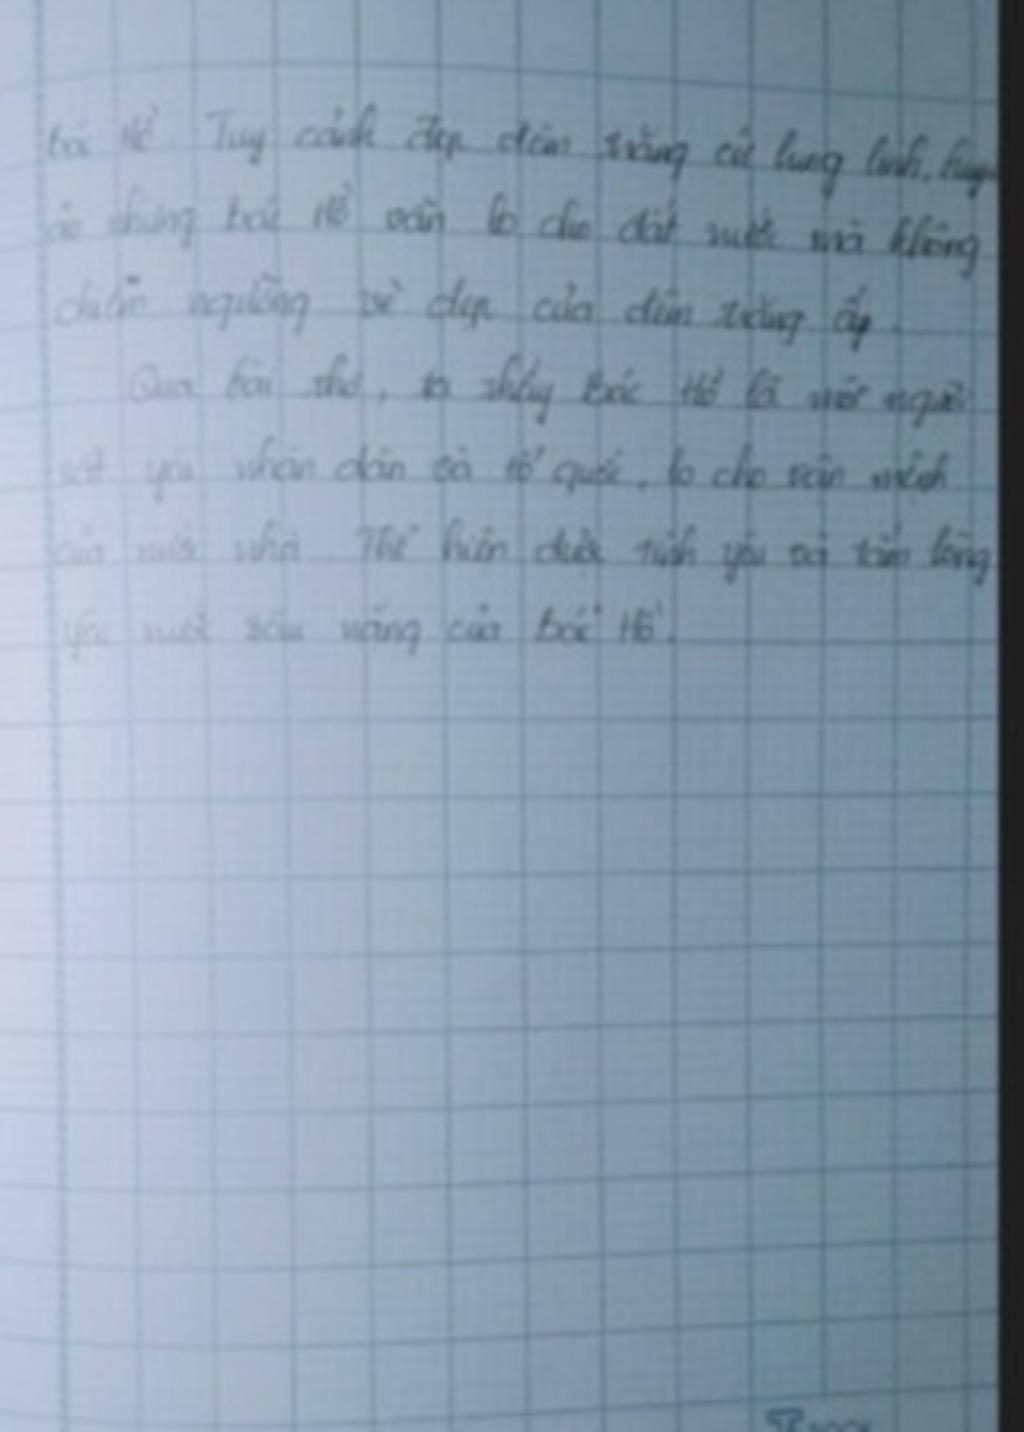 bác Hồ. Tuy cảnh đẹp đêm trăng cứ lung linh, huyền
ảo nhưng bác Hồ vẫn lo cho đất nước mà không
chiêm ngưỡng vẻ đẹp của đêm trăng ấy.
Qua bài thơ, ta thấy bác Hồ là một người
rất yêu nhân dân và tổ quốc, lo cho vận mệnh
của nước nhà. Thể hiện được tình yêu và tấm lòng
yêu nước sâu nặng của bác Hồ.